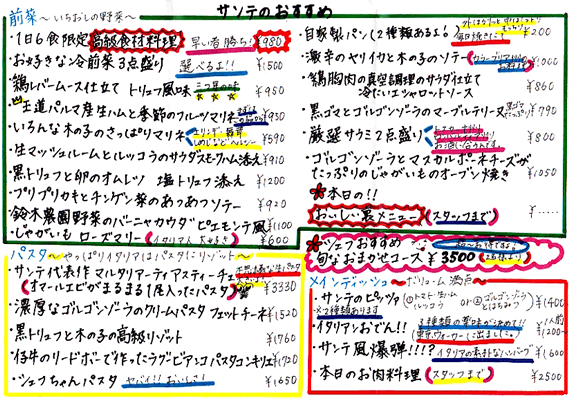 前菜 〜いちおしの野菜〜
サンテのおすすめ
・1日6食限定 高級食材料理 早い者勝ち! ¥980
・お好きな冷前菜3点盛り 選べるよ!! ¥1500
・鶏レバームース仕立て トリュフ風味 三つ星の味 ★★★ ¥950
・王道パルマ産生ハムと季節のフルーツマリネ ¥950
・いろんな木の子のさっぱりマリネ ¥590
・生マッシュルームとルッコラのサラダスモークハム添え ¥910
・黒トリュフと卵のオムレツ 塩トリュフ添え ¥1200
・プリプリカキとチンゲン菜のあつあつソテー ¥920
・鈴木農園野菜のバーニャカウダ ピエモンテ風 ¥1100
・じゃがいも ローズマリー (イタリア人 大好き) ¥600
・自家製パン(2種類あるよ) 外はカリッと 中はもっちり 毎日焼きたて ¥200
・激辛のヤリイカと木の子のソテー ¥1000
・鶏胸肉の真空調理のサラダ仕立て
冷たいエシャロットソース ¥860
・黒ゴマとゴルゴンゾーラのマーブルテリーヌ ¥790
・厳選サラミ2点盛り ¥800
・ゴルゴンゾーラとマスカルポーネチーズが
たっぷりのじゃがいものオーブン焼き ¥1050
本日の!!
おいしい裏メニュー (スタッフまで) ¥‥‥
シェフおすすめ
旬なおまかせコース ¥3500 (2名様より)
パスタ 〜やっぱりイタリアはパスタにリゾット〜
・サンテ代表作 マルタリアーティアスティーチェ
(オマールエビがまるまる1尾入ったパスタ) ¥3330
・濃厚なゴルゴンゾーラのクリームパスタ フェットチーネ ¥1520
・黒トリュフと木の子の高級リゾット ¥1760
・仔牛のリードボーで作ったラグービアンコパスタコンキリエ ¥1720
・シェフちゃんパスタ ヤバイ!! おいしさ! ¥1650
メインディッシュ 〜ボリューム満点〜
・サンテのピッツァ ※2種類あります ①トマト・生ハム ルッコラ or ②ゴルゴンゾーラ とはちみつ ¥1400
・イタリアンおでん!! 3種類の薬味が決め手!! 東京ウォーカーに出ました。 1人前 ¥1200〜
・サンテ風爆弾!!!? イタリアの素朴なハンバーグ ¥1600
・本日のお肉料理 (スタッフまで) ¥2500